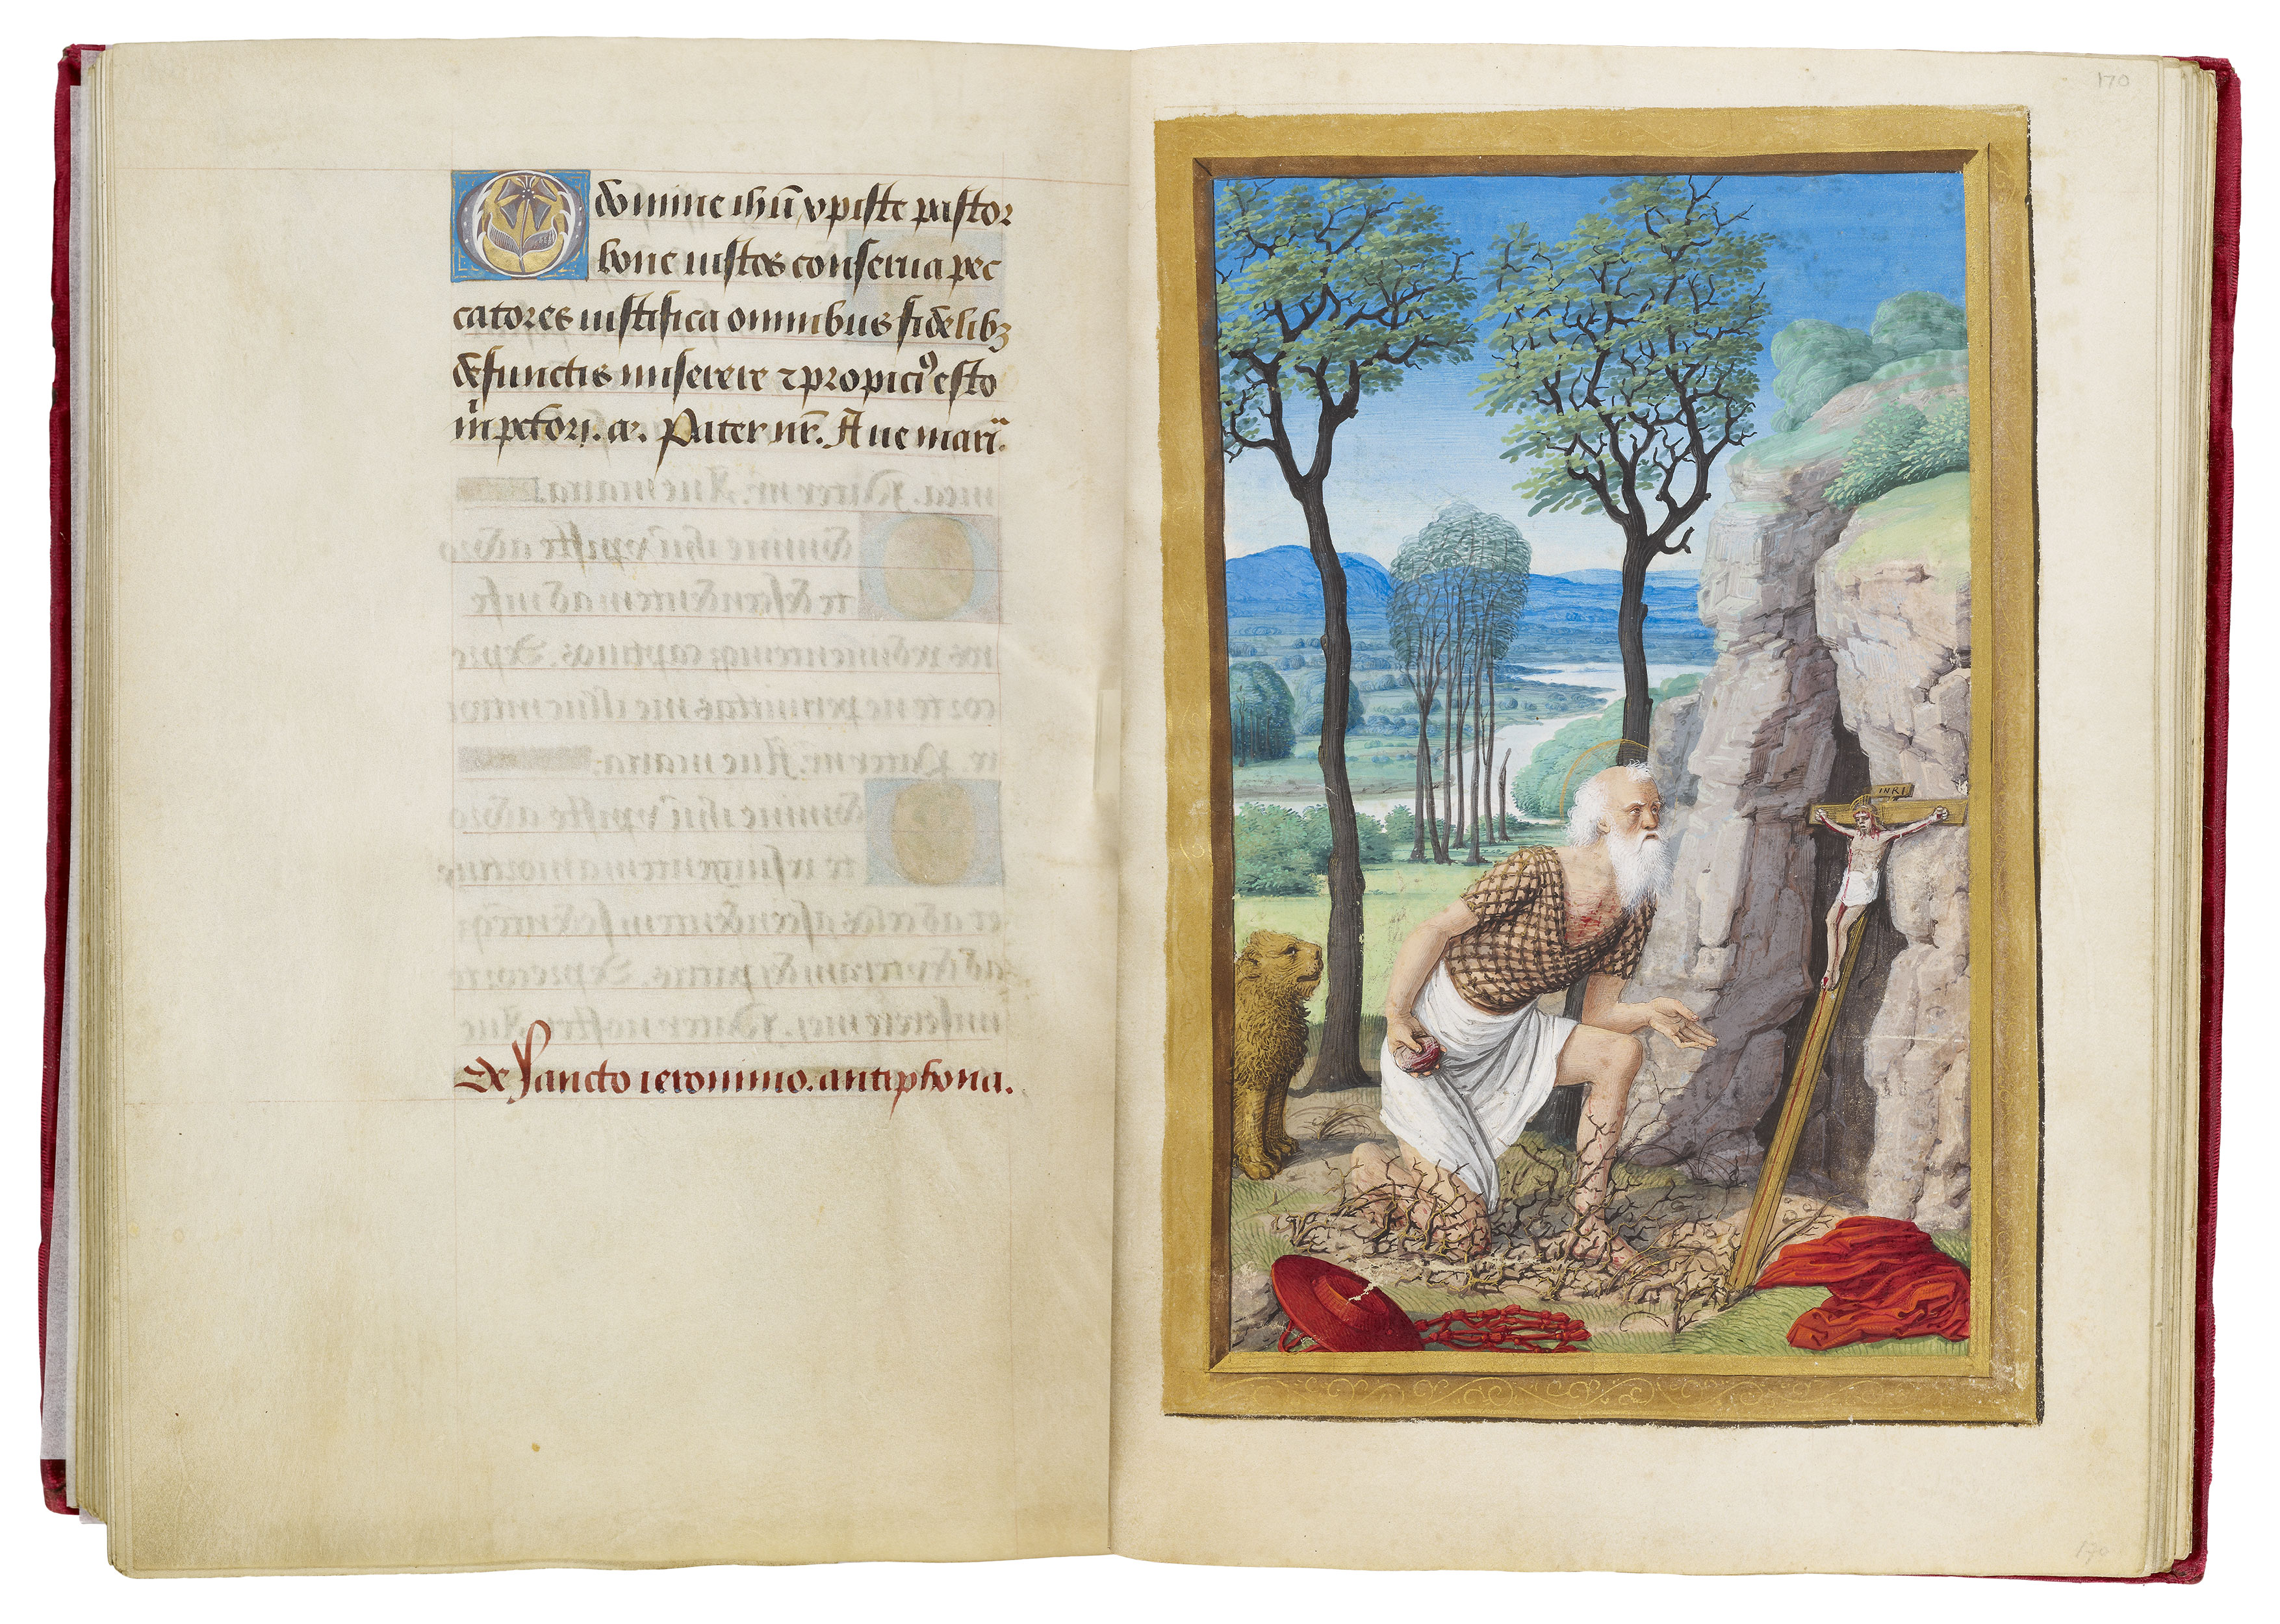 O domine ihū xpiste pastor
bone iustos conserua pec
catores iustifica omnibus fidelibꝫ
defunctis miserere ⁊ propiciꝰ esto
m̄ pctori. a. Pater nr̄. Aue mari
De sancto ieronimo. antiphona.
170
INRI
170